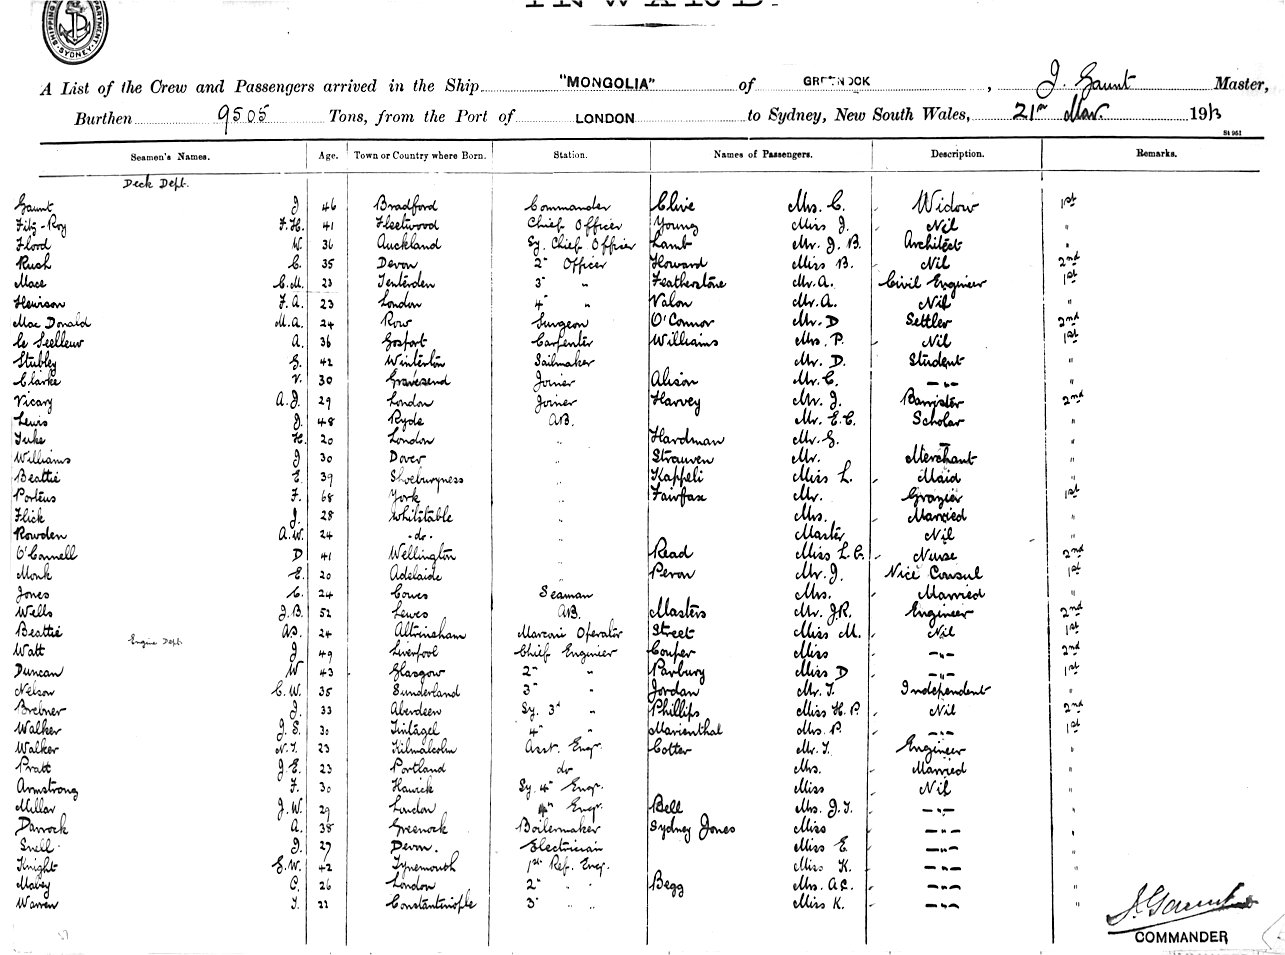 INWARD.
SHIPPING DEPARTMENT. SYDNEY
A List of the Crew and Passengers arrived in the Ship "MONGOLIA" of GREENOCK, J. Gaunt Master,
Burthen 9505 Tons, from the Port of LONDON to Sydney, New South Wales, 21st Mar. 1913
St 961
Seamen's Names. Age. Town or Country where Born. Station. Names of Passengers. Description. Remarks.
Deck Dept.
Gaunt J 46 Bradford Commander Clive Mrs. C. Widow 1st
Fitz-Roy F.H. 41 Fleetwood Chief Officer Young Miss J. Nil "
Flood W. 36 Auckland Sy. Chief Officer Lamb Mr. J. B. Architect "
Rush C. 35 Devon 2" Officer Howard Miss B. Nil 2nd
Mace C.M. 23 Tenterden 3" " Featherstone Mr. A. Civil Engineer 1st
Hewison F.A. 23 London 4" " Valon Mr. A. Nil "
Mac Donald M.A. 24 Row Surgeon O'Connor Mr. D Settler 2nd
Le Seelleur A. 36 Gosport Carpenter Williams Mrs. P. Nil 1st
Stubley G. 42 Winterton Sailmaker Mr. D. Student "
Clarke V. 30 Gravesend Joiner Alison Mr. C. -"- "
Vicary A.J. 29 London Joiner Harvey Mr. J. Barrister 2nd
Lewis J. 48 Ryde AB. Mr. E.C. Scholar "
Tuke H. 20 London " Hardman Mr. G. - "
Williams J 30 Dover " Strauven Mr. Merchant "
Beattie E. 39 Shoeburyness " Kappeli Miss L. Maid "
Porteus F. 68 York " Fairfax Mr. Grazier 1st
Flick J. 28 Whitstable " Mrs. Married "
Rowden A.W. 24 -do- " Master Nil "
O'Connell D 41 Wellington " Read Miss L.C. Nurse 2nd
Monk E. 20 Adelaide " Peron Mr. J. Vice Consul 1st
Jones C. 24 Cowes Seaman Mrs. Married "
Wells J.B. 52 Lewes AB. Masters Mr. J.R. Engineer 2nd
Beattie 24 Altrincham Marconi Operator Street Miss M. Nil 1st
Engine Dept.
Watt J 49 Liverpool Chief Engineer Couper Miss -"- 2nd
Duncan W 43 Glasgow 2" " Parbury Miss D -"- 1st
Nelson C.W. 35 Sunderland 3" " Jordan Mr. T. Independent "
Brebner J. 33 Aberdeen Sy. 3d " Phillips Miss H.P. Nil 2nd
Walker J.S. 30 Tintagel 4" " Marienthal Mrs. P. -"- 1st
Walker N.T. 23 Kilmalcolm Asst. Engr. Cotter Mr. T. Engineer "
Pratt J.E. 23 Portland do Mrs. Married "
Armstrong F. 30 Hawick Sy. 4th Engr. Miss Nil "
Millar J.W. 29 London 4th Engr. Bell Mrs. J.T. -"- "
Darrock A. 38 Greenock Boilermaker Sydney Jones Miss -"- "
Snell J. 27 Devon. Electrician Miss E -"- "
Knight E.W. 42 Tynemouth 1st Ref. Engr. Miss K. -"- "
Mabey C. 26 London 2" " " Begg Mrs. A.C. -"- "
Warren T. 22 Constantinople 3" " " Miss K. -"- "
J. Gaunt
COMMANDER